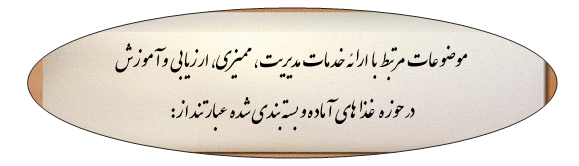 موضوعات مرتبط با ارائه خدمات مدیریت، ممیزی، ارزیابی و آموزش
در حوزه غذاهای آماده و بسته بندی شده عبارتند از: